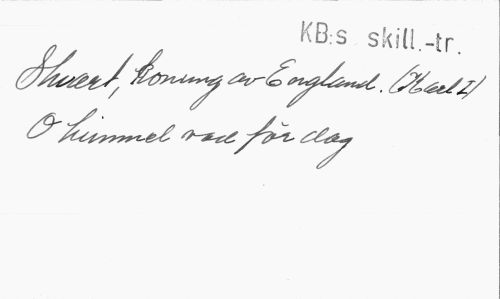 KB:s skill.-tr.
Stuart, Konung av England. (Karl I)
O himmel vad för dag